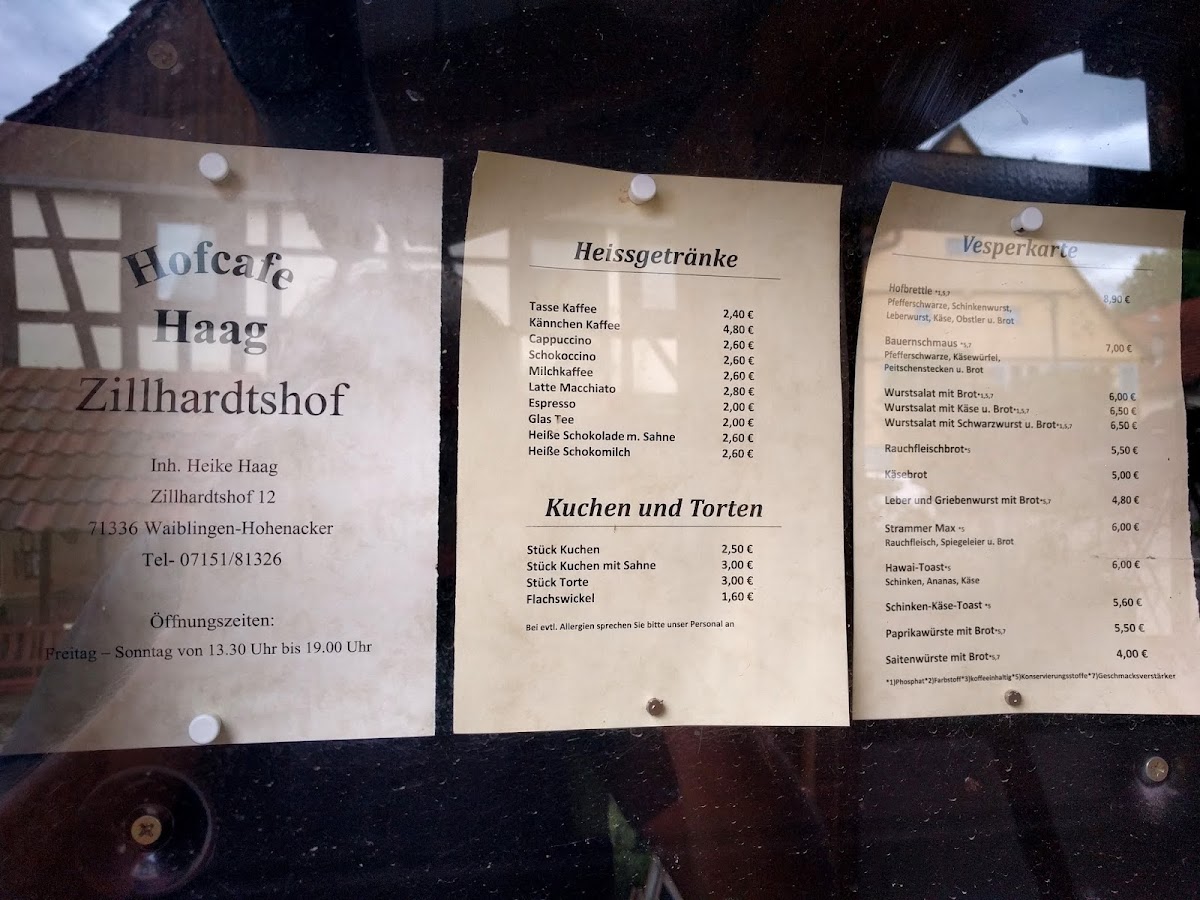 Hofcafe
Haag
Zillhardtshof
Inh. Heike Haag
Zillhardtshof 12
71336 Waiblingen-Hohenacker
Tel- 07151/81326
Öffnungszeiten:
Freitag – Sonntag von 13.30 Uhr bis 19.00 Uhr
Heissgetränke
Tasse Kaffee 2,40 €
Kännchen Kaffee 4,80 €
Cappuccino 2,60 €
Schokoccino 2,60 €
Milchkaffee 2,60 €
Latte Macchiato 2,80 €
Espresso 2,00 €
Glas Tee 2,00 €
Heiße Schokolade m. Sahne 2,60 €
Heiße Schokomilch 2,60 €
Kuchen und Torten
Stück Kuchen 2,50 €
Stück Kuchen mit Sahne 3,00 €
Stück Torte 3,00 €
Flachswickel 1,60 €
Bei evtl. Allergien sprechen Sie bitte unser Personal an
Vesperkarte
Hofbrettle *1,5,7 8,90 €
Pfefferschwarze, Schinkenwurst,
Leberwurst, Käse, Obstler u. Brot
Bauernschmaus *5,7 7,00 €
Pfefferschwarze, Käsewürfel,
Peitschenstecken u. Brot
Wurstsalat mit Brot*1,5,7 6,00 €
Wurstsalat mit Käse u. Brot*1,5,7 6,50 €
Wurstsalat mit Schwarzwurst u. Brot*1,5,7 6,50 €
Rauchfleischbrot*5 5,50 €
Käsebrot 5,00 €
Leber und Griebenwurst mit Brot*5,7 4,80 €
Strammer Max *5 6,00 €
Rauchfleisch, Spiegeleier u. Brot
Hawai-Toast*5 6,00 €
Schinken, Ananas, Käse
Schinken-Käse-Toast *5 5,60 €
Paprikawürste mit Brot*5,7 5,50 €
Saitenwürste mit Brot*5,7 4,00 €
*1)Phosphat*2)Farbstoff*3)koffeeinhaltig*5)Konservierungsstoffe*7)Geschmacksverstärker